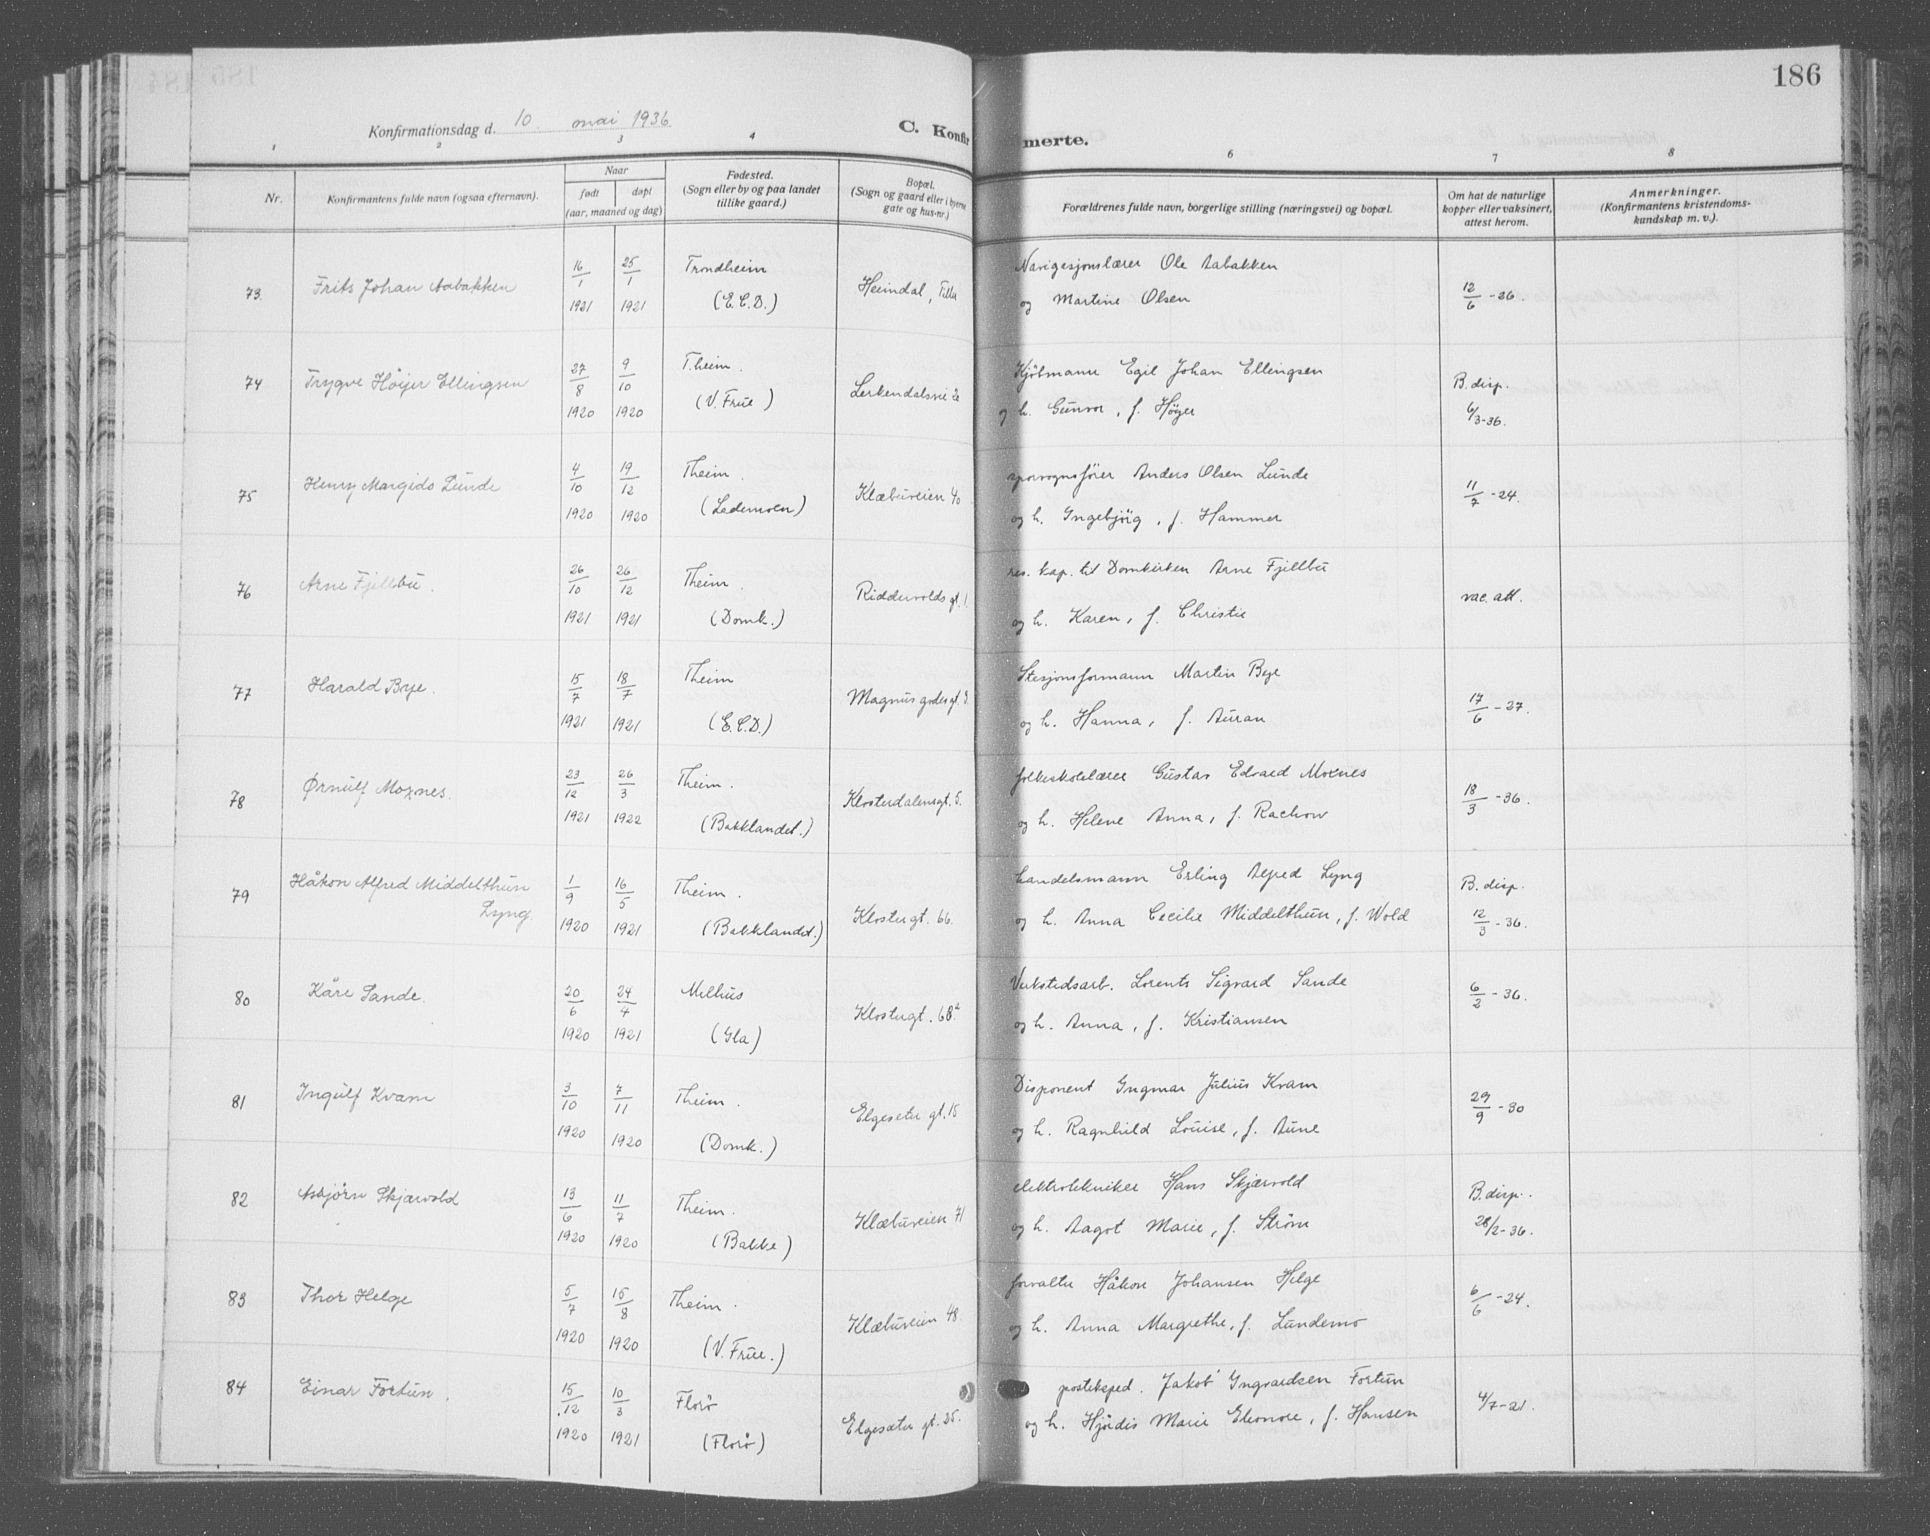 186
Konfirmationsdag d. 10. mai 1936. C. Konfir merte.
1 2 3 4 6 7 8
Nr.
Konfirmantens fulde navn (ogsaa efternavn).
Naar
født døpt
(aar, maaned og dag)
Fødested.
(Sogn eller by og paa landet
tillike gaard.)
Bopæl.
(Sogn og gaard eller i byerne
gate og hus-nr.)
Forældrenes fulde navn, borgerlige stilling (næringsvei) og bopæl.
Om hat de naturlige
kopper eller vaksinert,
attest herom.
Anmerkninger.
(Konfirmantens kristendoms-
kundskap m. v.).
73. Frits Johan Aabakken 16/1 1921 25/1 1921 Trondheim (E.C.D.) Heimdal, Tiller
Navigesjonslærer Ole Aabakken
og Martine Olsen
12/6 - 26.
74 Trygve Höijer Ellingsen 27/8 1920 9/10 1920 T.heim. (V. Frue) Lerkendalsvei 2e
Kjöbmann Egil Johan Ellingsen
og h. Gunvor, f. Höyer
B. disp. 6/3-36.
75 Henry Margido Lunde 4/10 1920 19/12 1920 Theim. (Lademoen) Klæbuveien 40
sporvognsförer Anders Olsen Lunde
og h. Ingebjörg, f. Hammer
11/7 - 24.
76 Arne Fjellbu. 26/10 1921 26/12 1921 Theim. (Domk.) Riddervolds gt. 1.
res. kap. til Domkirken Arne Fjellbu
og h. Karen, f. Christie
vac. att.
77 Harald Bye. 15/7 1921 18/7 1921 Theim (E.C.D.) Magnus godes gt.
Stasjonsformann Martin Bye
og h. Hanna, f. Auran
17/6 - 27.
78 Ørnulf Moxnes. 23/12 1921 26/3 1922 Theim. (Bakklandet.) Klosterdalensgt. 5.
folkeskolelærer Gustav Edvard Moxnes
og h. Helene Anna, f. Rachow
18/3 - 36.
79 Håkon Alfred Middelthun
Lyng. 1/9 1920 16/5 1921 Theim. (Bakklandet.) Klostergt. 66.
handelsmann Erling Alfred Lyng
og h. Anna Cecilie Middelthun, f. Wold
B. disp. 12/3 - 36.
80 Kåre Sande. 20/6 1920 24/4 1921 Melhus (Gla) Klostergt. 68a
Verkstedsarb. Lorents Sigvard Sande
og h. Anna, f. Kristiansen
6/2 - 36.
81 Ingulf Kvam 3/10 1920 7/11 1920 Theim. (Domk.) Elgeseter gt. 15
Disponent Ingmar Julius Kvam
og h. Ragnhild Louise, f. Aune
29/9 - 30
82 Asbjörn Skjærvold 13/6 1920 11/7 1920 Theim. (Bakke) Klæbuveien 71
elektrotekniker Hans Skjærvold
og h. Aagot Marie, f. Ström
B. disp. 28/2-36.
83 Thor Helge 5/7 1920 15/8 1920 Theim. (V. Frue.) Klæbuveien 48.
forvalter Håkon Johansen Helge
og h. Anna Margrethe, f. Lundemo
6/6 - 24.
84 Einar Fortun. 15/12 1920 10/3 1921 Florö (Florö) Elgeseter gt. 25.
posteksped. Jakob Ingvardsen Fortun
og h. Hjördis Marie Eleonore, f. Hansen
4/7-21.